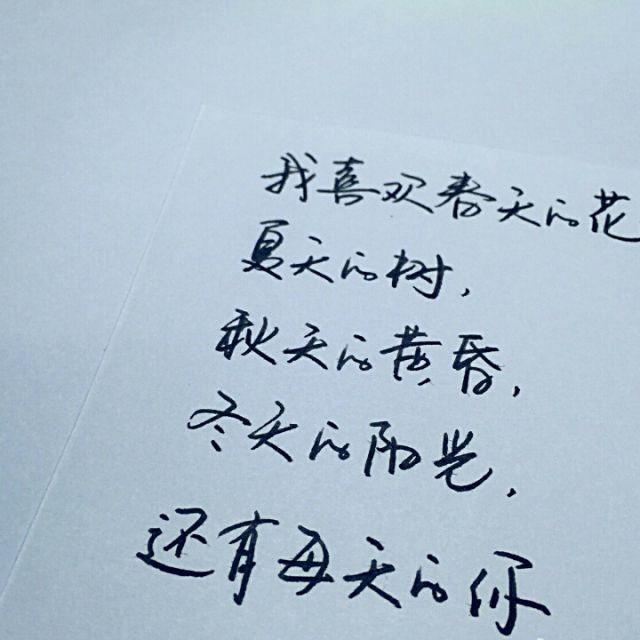 我喜欢春天的花
夏天的树,
秋天的黄昏,
冬天的阳光,
还有每天的你